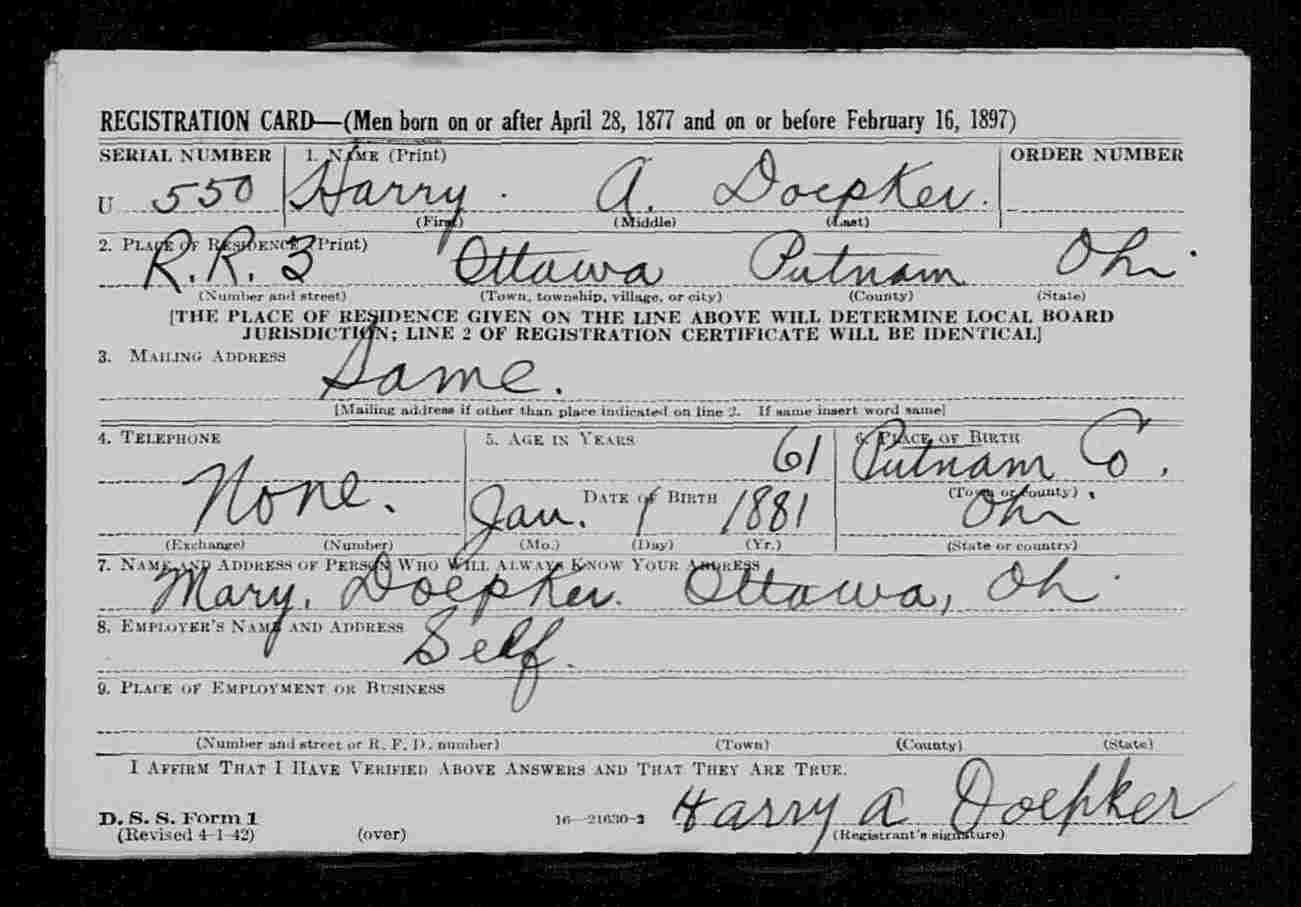 REGISTRATION CARD—(Men born on or after April 28, 1877 and on or before February 16, 1897)
SERIAL NUMBER 1. NAME (Print) ORDER NUMBER
U 550 Harry A. Doepker.
(First) (Middle) (Last)
2. PLACE OF RESIDENCE (Print)
R.R. 3 Ottawa Putnam Ohi
(Number and street) (Town, township, village, or city) (County) (State)
[THE PLACE OF RESIDENCE GIVEN ON THE LINE ABOVE WILL DETERMINE LOCAL BOARD
JURISDICTION; LINE 2 OF REGISTRATION CERTIFICATE WILL BE IDENTICAL]
3. MAILING ADDRESS
Same.
[Mailing address if other than place indicated on line 2. If same insert word same]
4. TELEPHONE 5. AGE IN YEARS 6. PLACE OF BIRTH
61 Putnam Co.
None. DATE OF BIRTH (Town or county)
Jan. 1 1881 Ohi
(Exchange) (Number) (Mo.) (Day) (Yr.) (State or country)
7. NAME AND ADDRESS OF PERSON WHO WILL ALWAYS KNOW YOUR ADDRESS
Mary. Doepker. Ottawa, Oh
8. EMPLOYER'S NAME AND ADDRESS
Self.
9. PLACE OF EMPLOYMENT OR BUSINESS
(Number and street or R. F. D. number) (Town) (County) (State)
I AFFIRM THAT I HAVE VERIFIED ABOVE ANSWERS AND THAT THEY ARE TRUE.
Harry A Doepker
D. S. S. Form 1
(Revised 4-1-42) (over) 16—21630-2 (Registrant's signature)